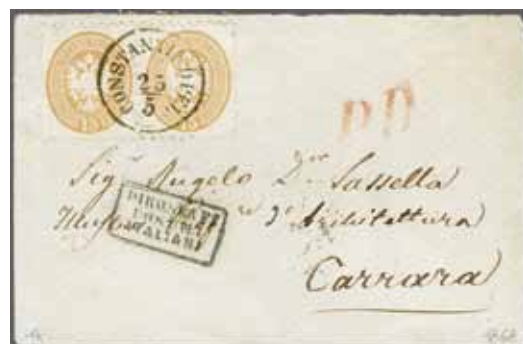 CONSTANTINOPEL
25
5
PD
Sigr Angelo Dr Sassella
d'Architettura
PIROSCAFI
POSTALI
ITALIANI
Carrara